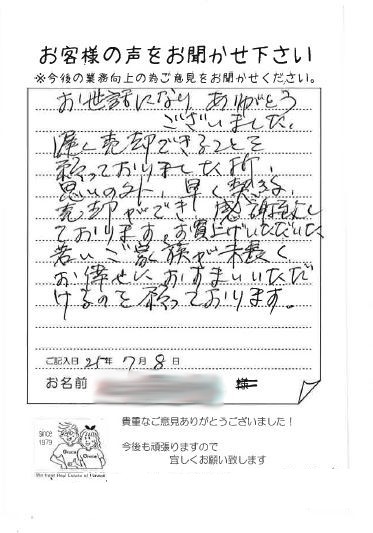 お客様の声をお聞かせ下さい
※今後の業務向上の為ご意見をお聞かせください。
お世話になり ありがとう
ございました。
早く売却できることを
願っておりました折、
思いの外、早く
売却ができ 感謝致し
ております。お買上げいただいた
若いご家族が末長く
お倖せにおすまいいただ
けるのを願っております。
ご記入日 25年 7月 8日
お名前 様
貴重なご意見ありがとうございました！
今後も頑張りますので
宜しくお願い致します
since
1979